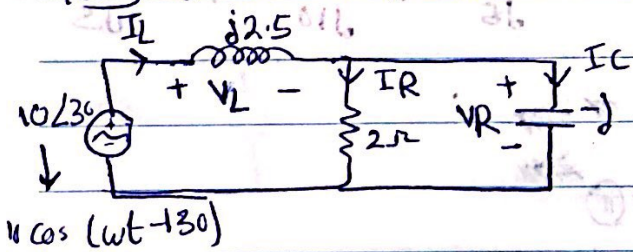 IL j2.5
+ VL - IR + IC
10∠30 2Ω VR -j
-
11 cos (wt+30)